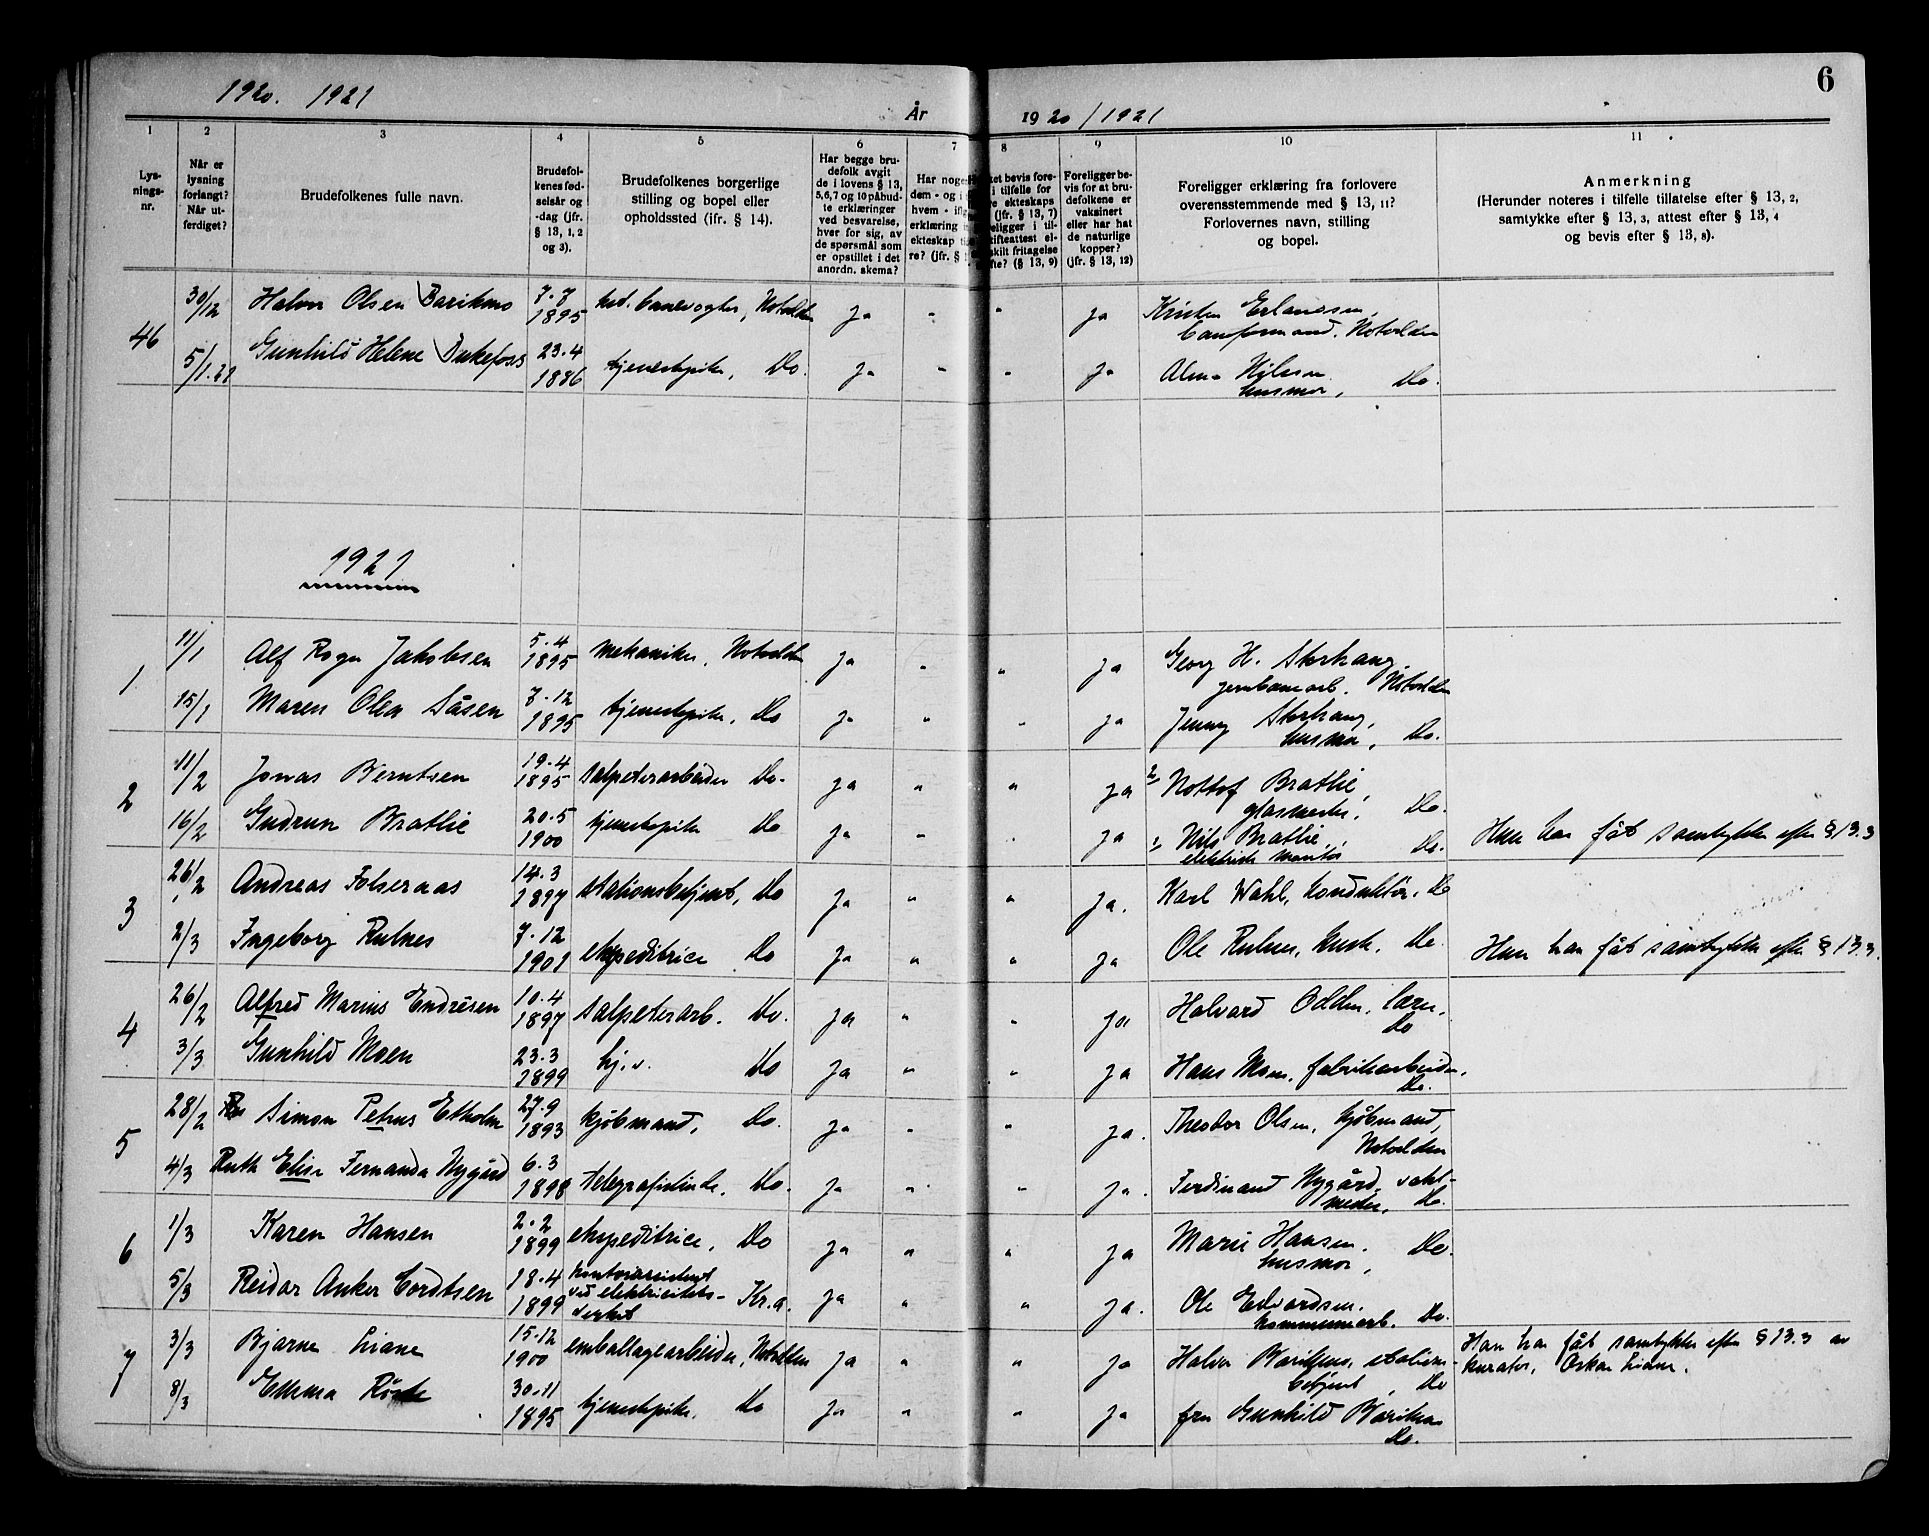 1920. 1921
År
1920/1921
6
1
2
3
4
5
6
7
8
9
10
11
Lys-
nings-
nr.
Når er
lysning
forlangt?
Når ut-
ferdiget?
Brudefolkenes fulle navn.
Brudefol-
kenes fød-
selsår og
-dag (jfr.
§ 13, 1, 2
og 3).
Brudefolkenes borgerlige
stilling og bopel eller
opholdssted (jfr. § 14).
Har begge bru-
defolk avgit
de i lovens § 13,
5,6,7 og 10 påbud-
te erklæringer
ved besvarelse,
hver for sig, av
de spørsmål som
er opstillet i det
anordn. skema?
Foreligger be-
vis for at bru-
defolkene er
vaksinert
eller har hat
de naturlige
kopper?
(jfr. § 13, 12)
Foreligger erklæring fra forlovere
overensstemmende med § 13, 11?
Forlovernes navn, stilling
og bopel.
Anmerkning
(Herunder noteres i tilfelle tillatelse efter § 13, 2,
samtykke efter § 13, 3, attest efter § 13, 4
og bevis efter § 13, 8).
46 30/12 Halvor Olsen 7.7 1895 Notodden ja " " ja Kristen
Notodden
5/1.21 Gunhild Helene 23.4 1886 tjenestepike, Do. ja " " ja Nilsen
husmor, Do.
1921
1 11/1 Alf Jakobsen 5.4 1895 mekaniker, Notodden ja " " ja Georg H. Storhaug,
jernbanearb. Notodden
15/1 Maren Olea Såsen 7.12 1895 tjenestepike, Do ja " " ja Jenny Storhaug,
husmor, Do.
2 11/2 Jonas Berntsen 19.4 1895 salpeterarbeider Do. ja " " ja Bratlie,
glasmester, Do.
16/2 Gudrun Bratlie 20.5 1900 tjenestepike Do ja " " ja Nils Bratlie,
elektrisk montør Do. Hun har fåt samtykke efter § 13.3
3 26/2 Andreas Folseraas 14.3 1897 stationsbetjent, Do ja " " ja. Karl Wahl, konduktør, Do
2/3 Ingeborg Rulnes 7.12 1901 ekspeditrice Do ja " " ja Ole Rulnes, Do. Hun har fåt samtykke efter § 13.3.
4 26/2 Alfred Marius Endresen 10.4 1897 salpeterarb. Do. ja " " ja Halvard Odden, lærer,
Do
3/3 Gunhild Moen 23.3 1899 hj.v. Do ja " " ja Hans Moen, fabrikarbeider,
Do.
5 28/2 Simon Petrus Etholm 27.9 1893 kjøbmand, Do. ja " " ja. Theodor Olsen, kjøbmand,
Notodden
4/3 Ruth Elise Fernanda Nygård 6.3 1898 telegrafistinde, Do. ja " " ja. Ferdinand Nygård, vakt-
mester, Do.
6 1/3 Karen Hansen 2.2 1899 ekspeditrice, Do ja " " ja Marie Hansen, Do.
husmor,
5/3 Reidar Anker Cordtsen 18.4 1899 kontorassistent
ved elektricitets-
verket Kr.a. ja " " ja. Ole Edvardsen,
kommunearb. Do.
7 3/3 Bjarne Liane 15.12 1900 emballagearbeider, Notodden ja " " ja Halvor stations-
betjent, Do Han har fåt samtykke efter § 13.3 av
kurator, Oskar Liane.
8/3 Emma 30.11 1895 tjenestepike, Do ja " " ja fru Gunhild
Do.